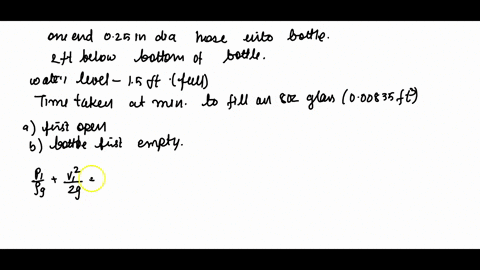 one end 0.25 in dia hose into bottle.
2 ft below bottom of bottle.
water level - 1.5 ft (full)
Time taken at min. to fill an 8oz glass (0.00835 ft³)
a) first open
b) bottle first empty.
P₁/ρg + V₁²/2g =